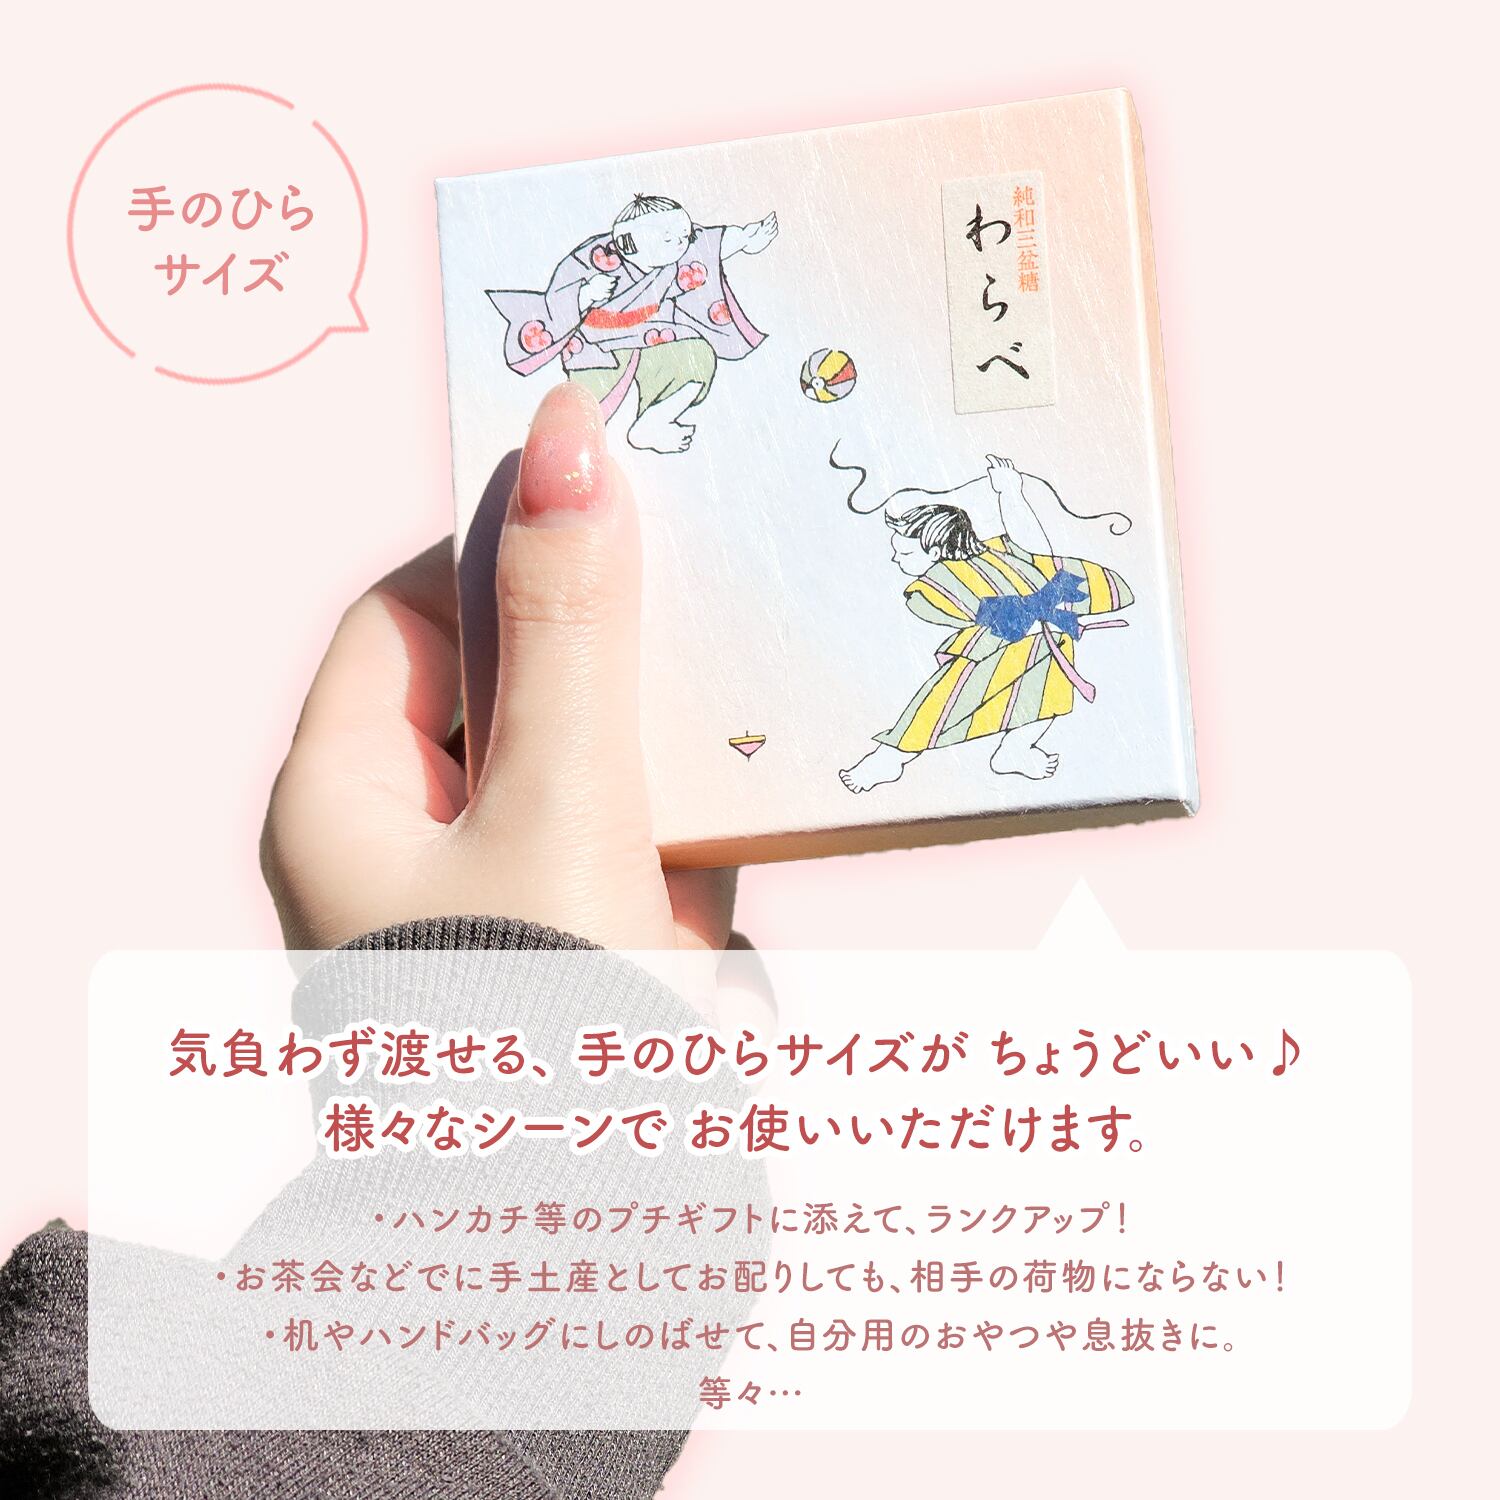 手のひら
サイズ
純和三盆糖
わらべ
気負わず渡せる、手のひらサイズが ちょうどいい♪
様々なシーンで お使いいただけます。
・ハンカチ等のプチギフトに添えて、ランクアップ！
・お茶会などでに手土産としてお配りしても、相手の荷物にならない！
・机やハンドバッグにしのばせて、自分用のおやつや息抜きに。
等々…